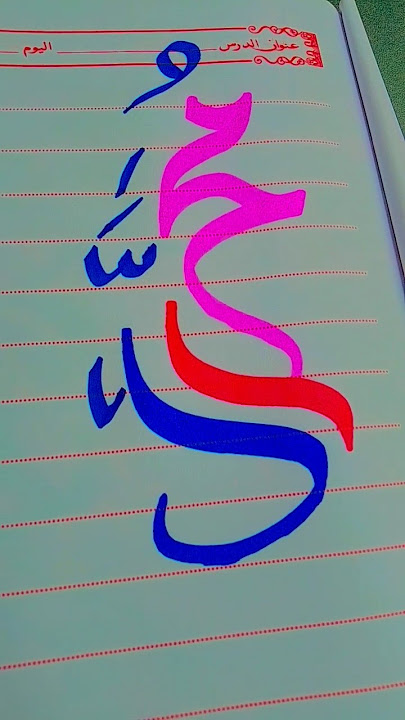 عنوان الدرس اليوم
مُحَمَّد